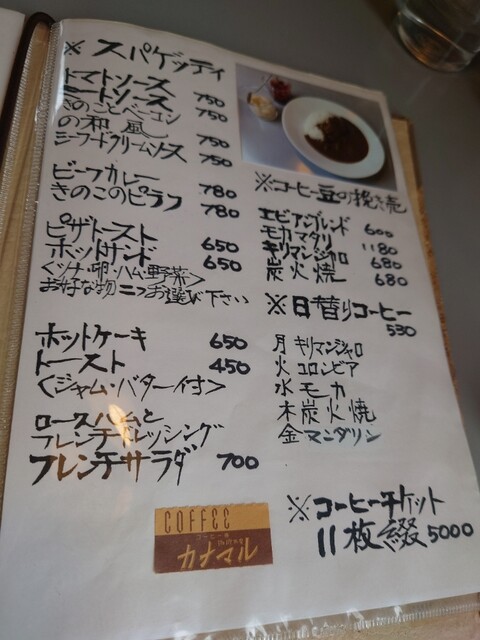 ※スパゲッティ
トマトソース 750
ミートソース
きのことベーコン
の和風 750
シーフードクリームソース 750
ビーフカレー 780
きのこのピラフ 780
ピザトースト 650
ホットサンド 650
<ツナ・卵・ハム・野菜>
お好な物二つお選び下さい
ホットケーキ 650
トースト 450
<ジャム・バター付>
ロースハムと
フレンチドレッシング
フレンチサラダ 700
※コーヒー豆の挽き売
エビアンブレンド 600
モカマタリ 1180
キリマンジャロ 680
炭火焼 680
※日替りコーヒー
530
月 キリマンジャロ
火 コロンビア
水 モカ
木 炭火焼
金 マンダリン
※コーヒーチケット
11枚綴 5000
COFFEE
カナマル